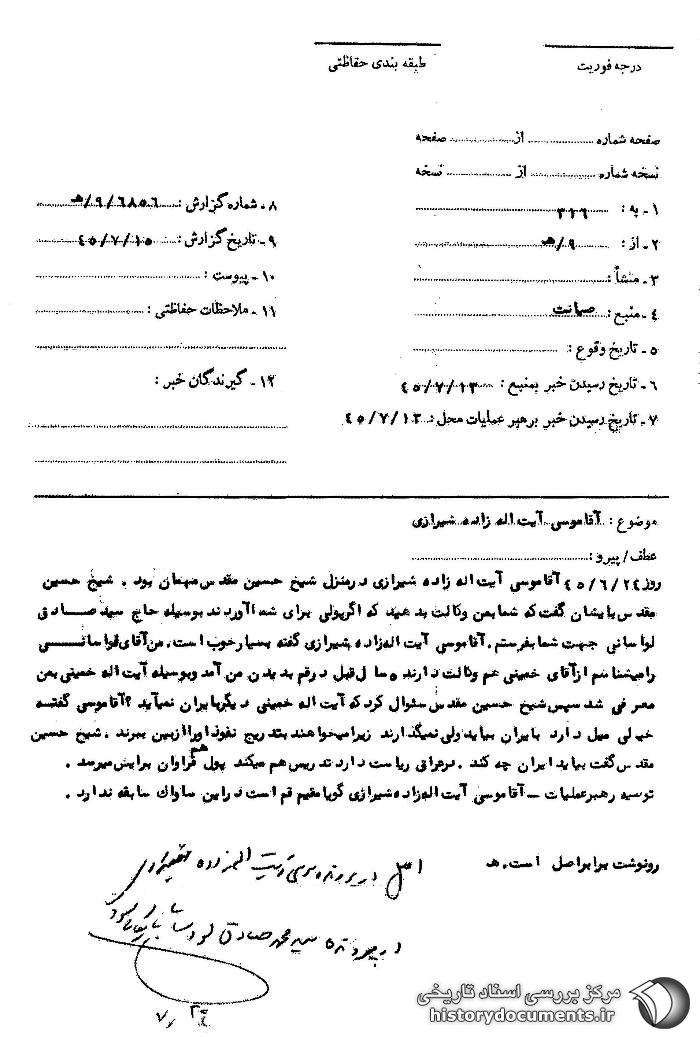 درجه فوریت
طبقه بندی حفاظتی
صفحه شماره ............ از ............ صفحه
نسخه شماره ............ از ............ نسخه
۱ـ به : ۳۱۶
۲ـ از : ۹/هـ
۳ـ منشأ :
۴ـ منبع : صیانت
۵ـ تاریخ وقوع :
۶ـ تاریخ رسیدن خبر بمنبع : ۴۵/۷/۱۳
۷ـ تاریخ رسیدن خبر برهبر عملیات محل : ۴۵/۷/۱۳
۸ـ شماره گزارش : ۹/۶۸۵۶/هـ
۹ـ تاریخ گزارش : ۴۵/۷/۱۵
۱۰ـ پیوست :
۱۱ـ ملاحظات حفاظتی :
۱۲ـ گیرندگان خبر :
موضوع : آقاموسی آیت اله زاده شیرازی
عطف/پیرو :
روز ۴۵/۶/۲۴ آقاموسی آیت اله زاده شیرازی درمنزل شیخ حسین مقدس مهمان بود . شیخ حسین
مقدس بایشان گفت که شما بمن وکالت بدهید که اگرپولی برای شما آوردند بوسیله حاج سید صادق
لواسانی جهت شما بفرستم . آقاموسی آیت اله زاده شیرازی گفته بسیار خوب است ، من آقای لواسانی
را میشناسم از آقای خمینی هم وکالت دارند ۵ سال قبل در قم بدیدن من آمد و بوسیله آیت اله خمینی بمن
معرفی شد سپس شیخ حسین مقدس سئوال کرد که آیت اله خمینی دیگر بایران نمیآید ؟ آقاموسی گفته
خیلی میل دارد بایران بیاید ولی نمیگذارند زیرا میخواهند بتدریج نفوذ او را از بین ببرند ، شیخ حسین
مقدس گفت بیاید ایران چه کند . در عراق ریاست دارد تدریس هم میکند پول هم فراوان برایش میرسد .
توسیه رهبرعملیات – آقاموسی آیت اله زاده شیرازی گویا مقیم قم است در این ساواک سابقه ندارد .
رونوشت برابر اصل است . هـ
اصل در پرونده موسی آیت اله زاده شیرازی
در پرونده سید محمد صادق لواسانی بایگانی شود
۷/۲۴
مرکز بررسی اسناد تاریخی
historydocuments.ir